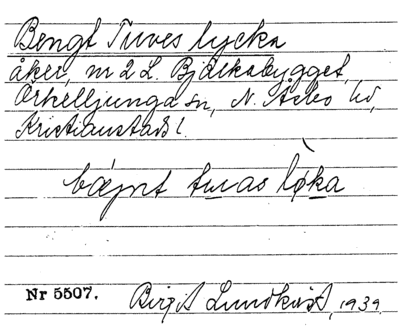 Bengt Tuves lycka
åker, nr 2 L. Bjälkabygget,
Örkelljunga sn, N. Åsbo hd,
Kristianstads l.
bæ̀jnt tuas lø̀ka
Nr 5507. Birgit Lundkvist, 1939.